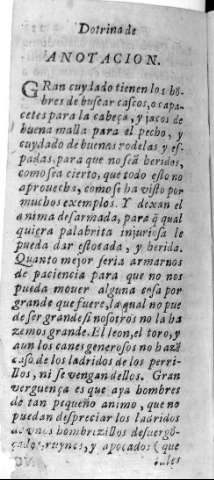 Dotrina de
ANOTACION.
GRan cuydado tienen los hõ
bres de buscar cascos, o capa
cetes para la cabeça, y jacos de
buena malla para el pecho, y
cuydado de buenas rodelas y es
padas, para que no seã heridos,
como sea cierto, que todo esto no
aprouecha, como se ha visto por
muchos exemplos. Y dexan el
anima desarmada, para q̃ qual
quiera palabrita injuriosa le
pueda dar estocada, y herida.
Quanto mejor seria armarnos
de paciencia para que no nos
pueda mouer alguna cosa por
grande que fuere, la qual no pue
de ser grande si nosotros no la ha
zemos grande. El leon, el toro, y
aun los canes generosos no hazẽ
caso de los ladridos de los perri
llos, ni se vengan dellos. Gran
verguença es que aya hombres
de tan pequeño animo, que no
puedan despreciar los ladridos
de vnos hombrezillos desuergõ
çados, ruynes, y apocados (que
tales